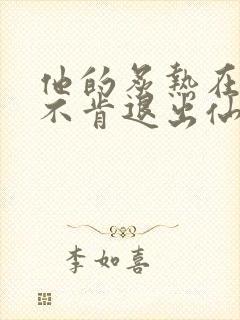 他的炙熱在
不肯退出仙
李如喜